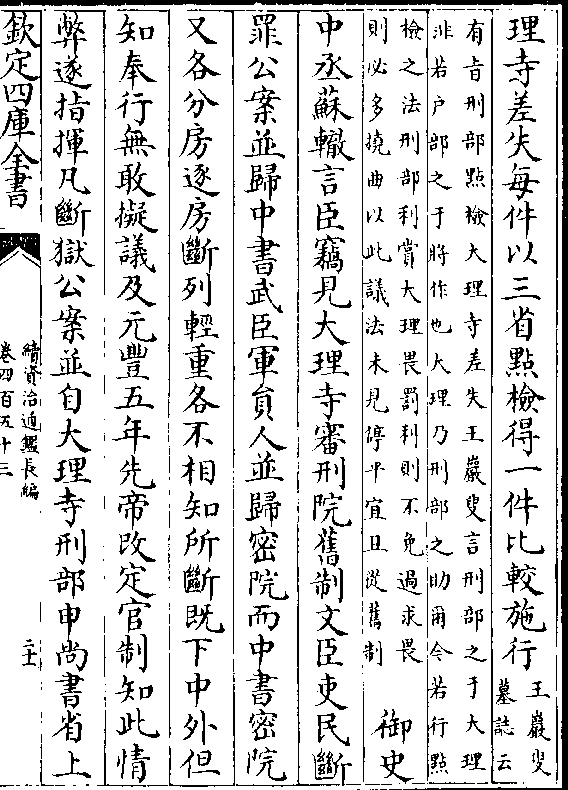 理寺差失每件以三省點檢得一件比較施行王巖叟墓誌云
有㫖刑部點檢大理寺差失王巖叟言刑部之于大理
非若户部之于將作也大理乃刑部之助爾今若行點
檢之法刑部利賞大理畏罰利則不免過求畏
則必多撓曲以此議法未見停平宜且從舊制
御史
中丞蘇轍言臣竊見大理寺審刑院舊制文臣吏民斷
罪公案並歸中書武臣軍員人並歸密院而中書密院
又各分房逐房斷列輕重各不相知所斷既下中外但
知奉行無敢擬議及元豐五年先帝改定官制知此情
弊遂指揮凡斷獄公案並自大理寺刑部申尚書省上
欽定四庫全書
續資治通鑑長編
卷四百五十三
二十一